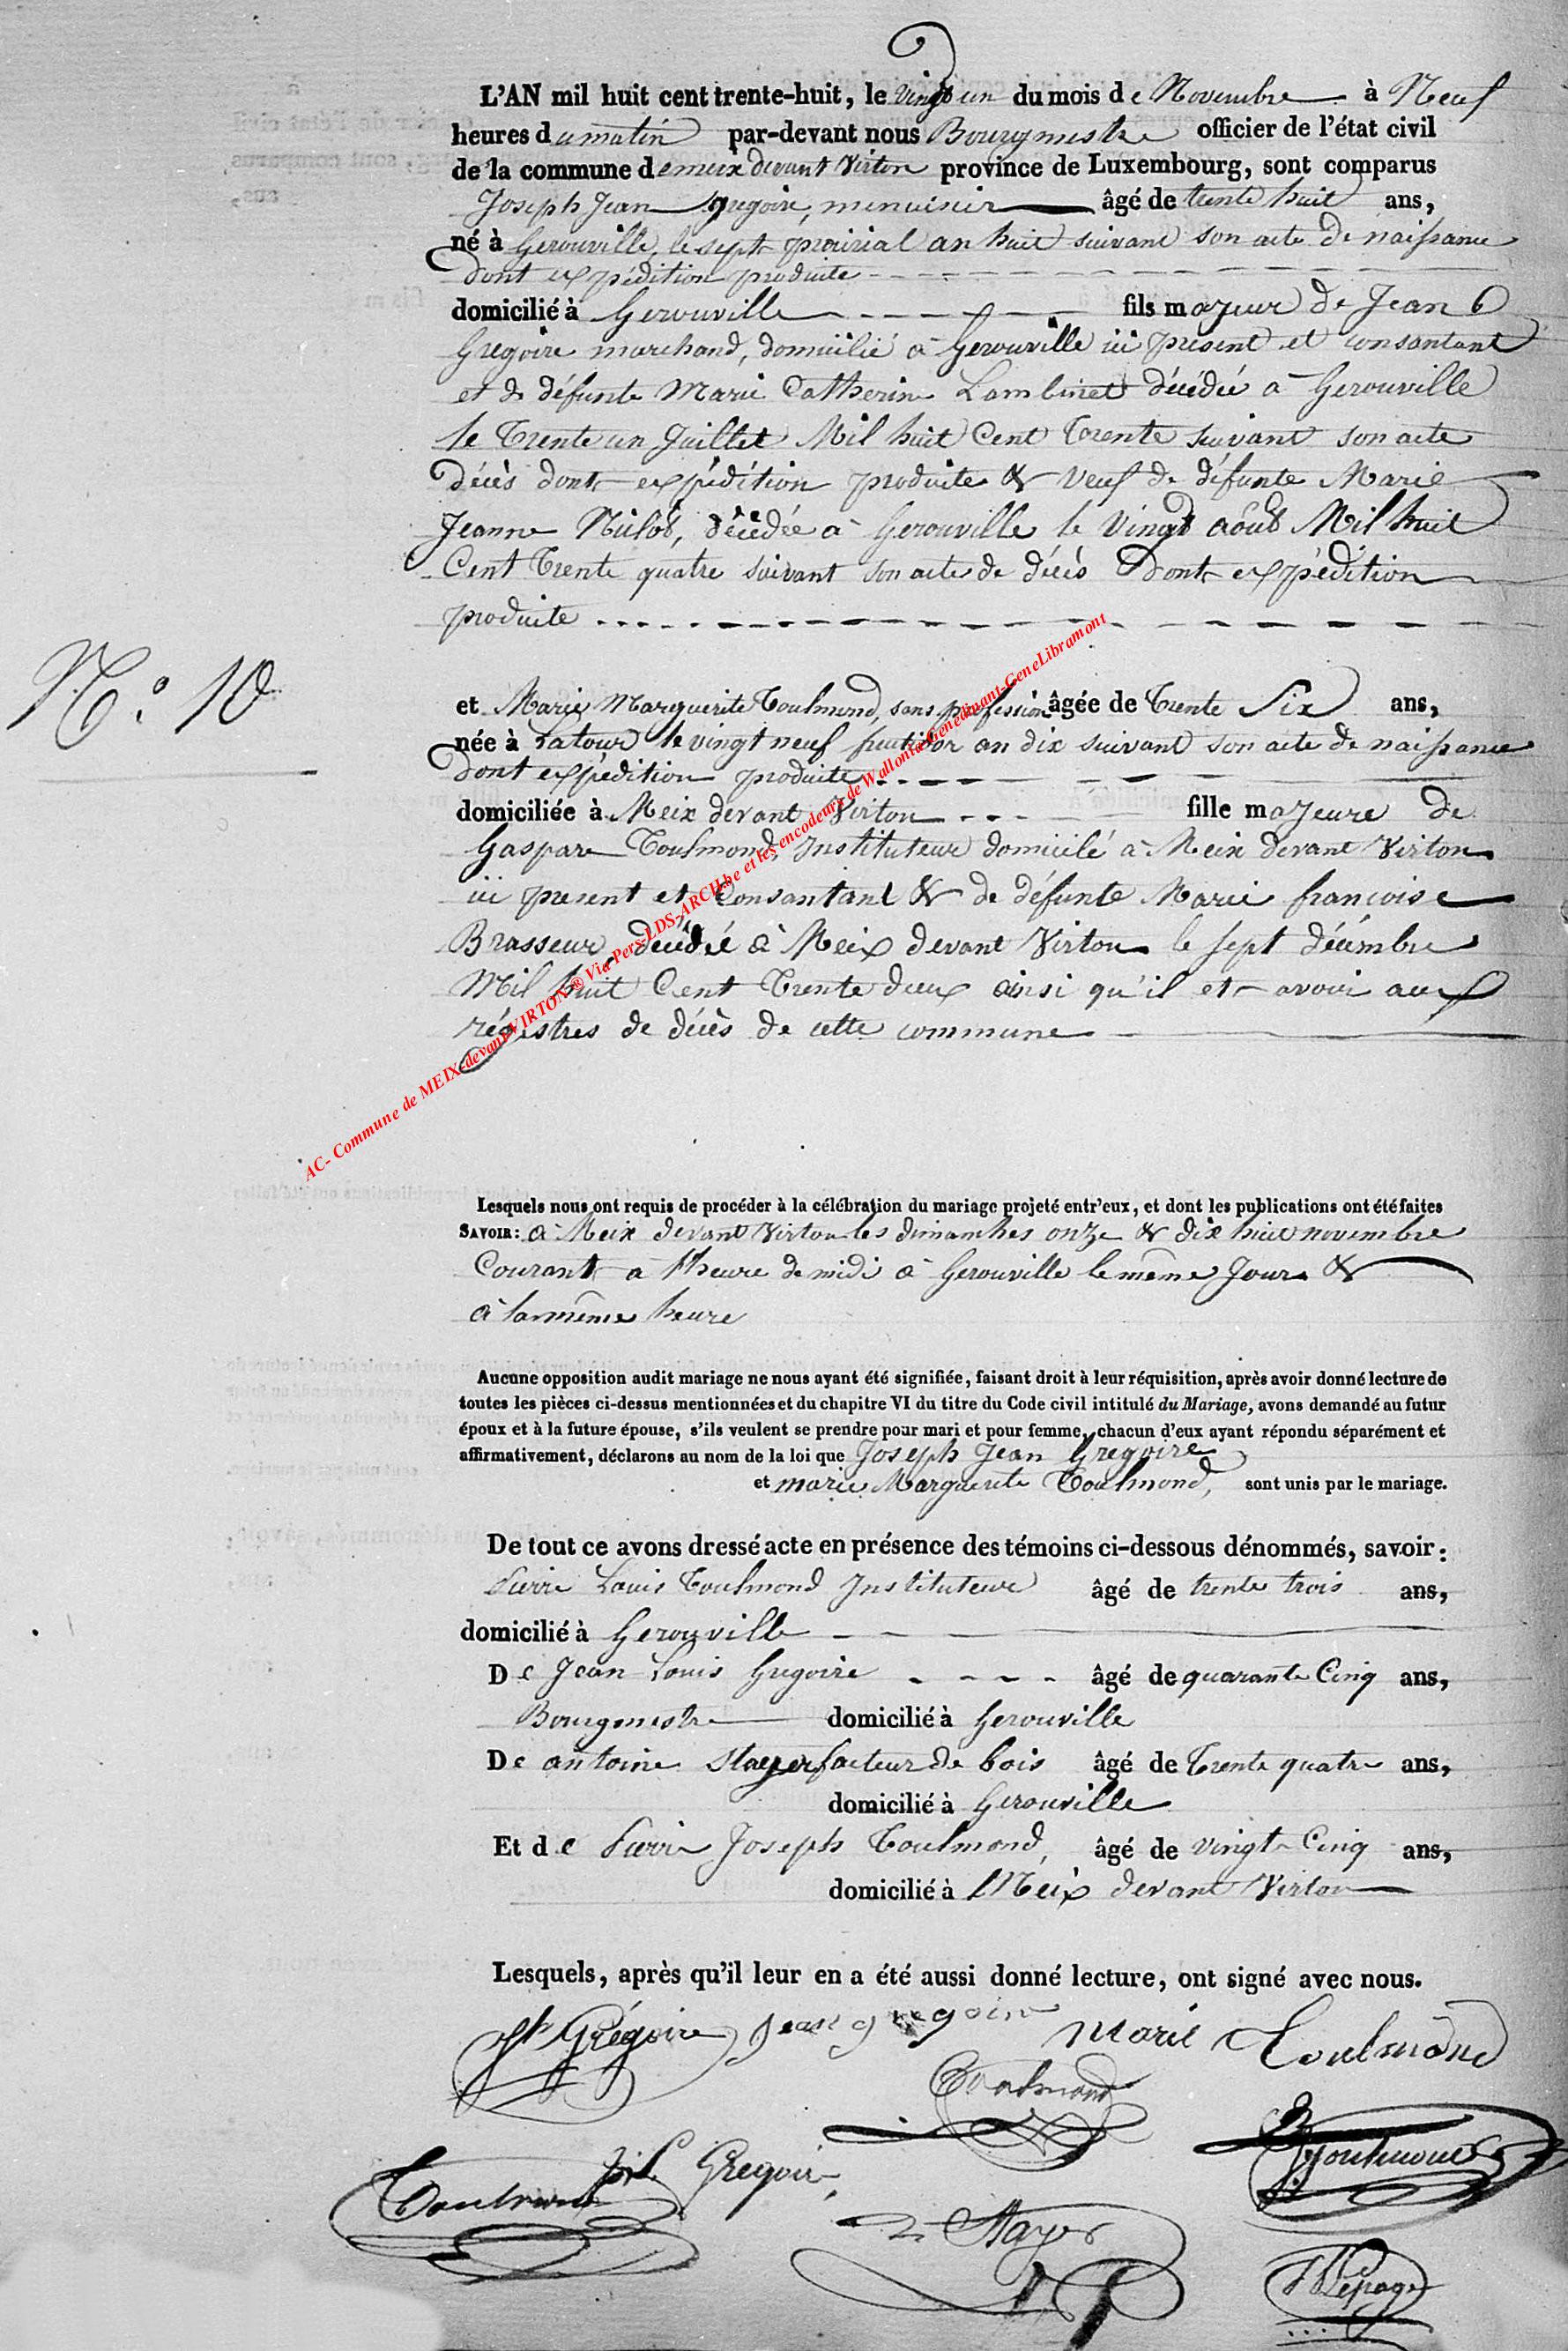 L'AN mil huit cent trente-huit, le vingt un du mois de Novembre à Neuf
heures du matin par-devant nous Bourgmestre officier de l'état civil
de la commune de meix devant Virton province de Luxembourg, sont comparus
Joseph Jean Gregoire, menuisier âgé de trente huit ans,
né à Gerouville, le sept prairial an huit suivant son acte de naissance
dont expédition produite
domicilié à Gerouville fils majeur de Jean
Gregoire marchand, domicilié à Gerouville ici présent et consantant
et de défunte Marie Catherine Lambinet décédée à Gerouville
le Trente un Juillet Mil huit Cent Trente suivant son acte
décès dont expédition produite & veuf de défunte Marie
Jeanne décédée à Gerouville le Vingt aôut Mil huit
Cent Trente quatre suivant son acte de décès dont expédition
produite
N.º 10
et Marie Marguerite Toulmond, sans profession âgée de Trente Six ans,
née à Latour le vingt neuf fructidor an dix suivant son acte de naissance
dont expédition produite
domiciliée à Meix devant Virton fille majeure de
Gaspare Toulmond, Instituteur domicilé à Meix devant Virton
ici present et Consantant & de défunte Marie françoise
Brasseur, décédée à Meix devant Virton le sept décembre
Mil huit Cent Trente deux ainsi qu'il et avoir aux
régistres de décès de cette commune
AC- Commune de MEIX-devant-VIRTON ® Via Pers-LDS-ARCH.be et les encodeurs de Wallonia-Genedinant-GeneLibramont
Lesquels nous ont requis de procéder à la célébration du mariage projeté entr'eux, et dont les publications ont été faites
SAVOIR: à Meix devant Virton les dimanches onze & dix huit novembre
Courant à l'heure de midi à Gerouville le même Jour &
à la même heure
Aucune opposition audit mariage ne nous ayant été signifiée, faisant droit à leur réquisition, après avoir donné lecture de
toutes les pièces ci-dessus mentionnées et du chapitre VI du titre du Code civil intitulé du Mariage, avons demandé au futur
époux et à la future épouse, s'ils veulent se prendre pour mari et pour femme, chacun d'eux ayant répondu séparément et
affirmativement, déclarons au nom de la loi que Joseph Jean Gregoire
et marie Marguerite Toulmond, sont unis par le mariage.
De tout ce avons dressé acte en présence des témoins ci-dessous dénommés, savoir:
Pierre Louis Toulmond Instituteur âgé de trente trois ans,
domicilié à Gerouville
De Jean Louis Gregoire âgé de quarante Cinq ans,
Bourgmestre domicilié à Gerouville
De antoine Stayer facteur de bois âgé de Trente quatre ans,
domicilié à Gerouville
Et de Pierre Joseph Toulmond, âgé de vingt Cinq ans,
domicilié à Meix devant Virton
Lesquels, après qu'il leur en a été aussi donné lecture, ont signé avec nous.
Grégoire Jean gregoire Marie Toulmond
Toulmond
Toulmond
Toulmond J. L. Gregoire
Stayer
Lepage